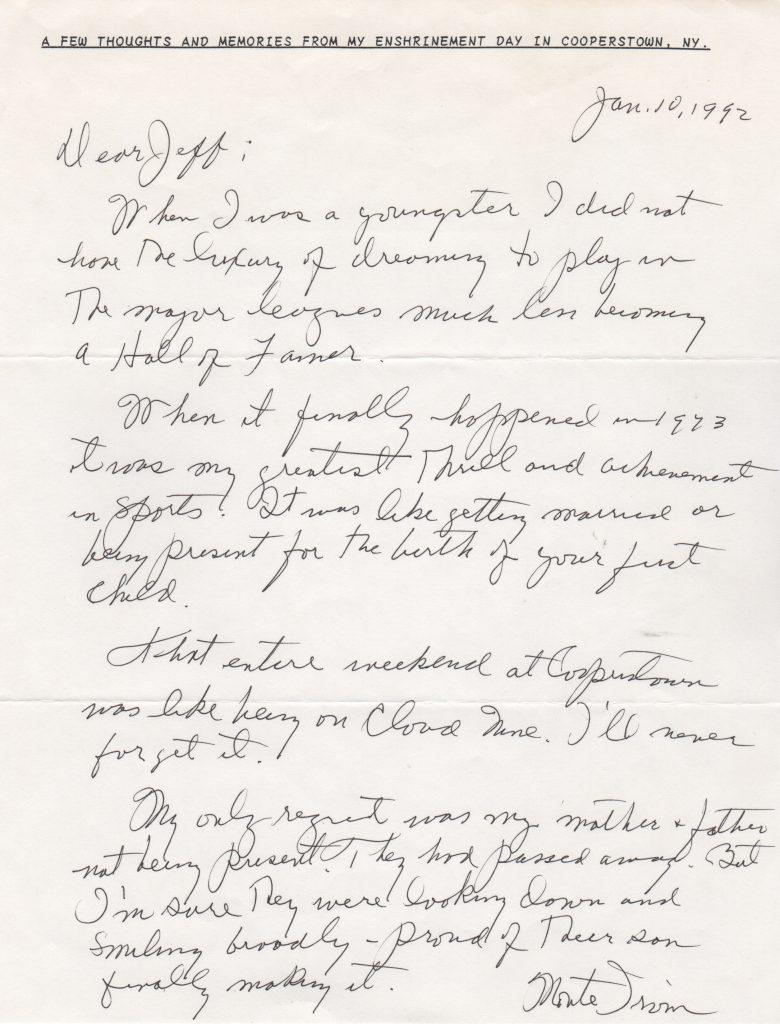 A FEW THOUGHTS AND MEMORIES FROM MY ENSHRINEMENT DAY IN COOPERSTOWN, NY.
Jan. 10, 1992
Dear Jeff;
When I was a youngster I did not
have the luxury of dreaming to play in
the major leagues much less becoming
a Hall of Famer.
When it finally happened in 1973
it was my greatest thrill and achievement
in sports. It was like getting married or
being present for the birth of your first
child.
That entire weekend at Cooperstown
was like being on Cloud Nine. I'll never
forget it.
My only regret was my mother + father
not being present. They had passed away. But
I'm sure they were looking down and
smiling broadly - proud of their son
finally making it.
Monte Irvin